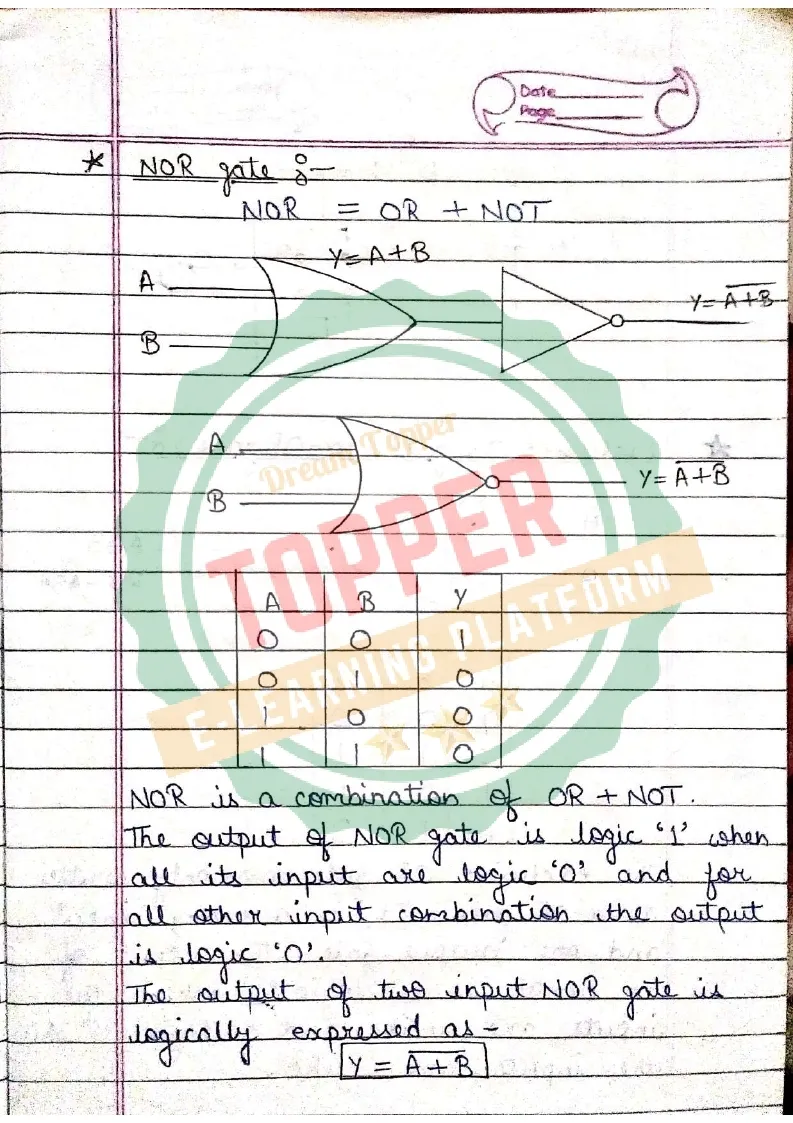 Date
Page
* NOR gate :-
NOR = OR + NOT
Y=A+B
A
Y= A̅+̅B̅
B
A
Dream Topper
Y= A̅+̅B̅
B
TOPPER
E-LEARNING PLATFORM
A B Y
0 0 1
0 1 0
1 0 0
1 1 0
NOR is a combination of OR + NOT.
The output of NOR gate is logic '1' when
all its input are logic '0' and for
all other input combination the output
is logic '0'.
The output of two input NOR gate is
logically expressed as -
Y = A̅+̅B̅